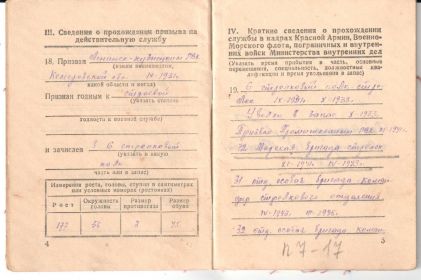 III. Сведения о прохождении призыва на
действительную службу
18. Призван
(каким военкоматом,
Кемеровской обл. IX-1931г.
какой области и когда)
Признан годным к строевой
(указать степень
годности к военной службе)
и зачислен в 6 стрелковый
(указать в какую
полк
часть или в запас)
Измерения роста, головы, ступни в сантиметрах
или условных номерах (ростовках)
Рост
Окружность головы
Размер противогаза
Размер обуви
177
56
3
4
IV. Краткие сведения о прохождении
службы в кадрах Красной Армии, Военно-
Морского флота, пограничных и внутрен-
них войск Министерства внутренних дел
(Указать время прибытия в часть, основные
перемещения, специальность, должностные ква-
лификации и время увольнения в запас)
19. 6 стрелковый полк
Уволен в запас X-1933
Призван
72 Морская бригада стрелок
31 отд. особая бригада коман
дир стрелкового отделения
32 отд. особая бригада коман.
п7-17
5